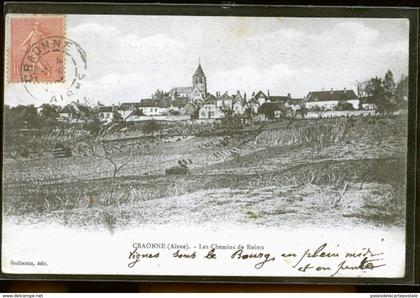 CRAONNE
AISNE
CRAONNE (Aisne). - Les Chemins de Reims
Vignes sous le Bourg en plein midi
et en pente
Guillemin, édit.
www.palaisdelacartepostale.com